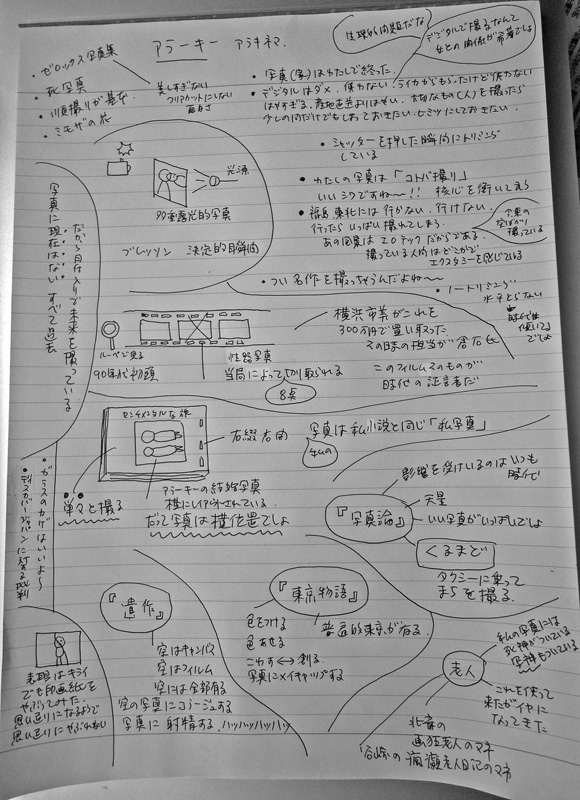 アラーキー アラキネマ
・ゼロックス写真集
・死写真
・順撮りが基本
・ミモザの花
美しすぎない
フォーマットにしない
面白さ
生理的な問題だな
デジタルで撮るなんて
女との関係が希薄でしょ
・写真(家)はわたしで終った。
・デジタルはダメ、使わない。ライカからもらったけど使わない
はやすぎる。
大切なもの(人)を撮ったら
少しの間だけでもしまっておきたい。ヒミツにしておきたい。
・シャッターを押した瞬間にトリミング
している
・わたしの写真は「コトバ撮り」
いいシワですね〜!! 核心を衝いてえる
・福島東北には行かない、行けない。
行ったらいっぱい撮れてしまう。
あの風景はエロチックだからである。
撮っている人間はどこかで
エクスタシーを感じている
今東の
空ばかり
撮っている
光源
90番露光的写真
ブレッソン 決定的瞬間
写真に現在はない すべて過去
だから日付入りで未来を撮っている
・つい名作を撮っちゃうんだよね〜
・ノートリミング
水平とらない
時代は
傾いてる
でしょ
ルーペで見る
90年代初頭
性器写真
当局によって切り取られる
8点
横浜市美がこれを
300万円で買い取った
その時の担当が倉石氏
このフィルムそのものが
時代の証言者だ
センチメンタルな旅
右綴右開
写真は私小説と同じ「私写真」
私の
単々と撮る
アラーキーの結婚写真
横にレイアウトされている。
だって写真は横位置でしょ
影響を受けているのはいつも
時代
『写真論』
天皇
いい写真がいっぱいでしょ
くるまど
タクシーに乗って
まちを撮る。
・ガラスのカゲはいいよ〜
・ディスカバージャパンに対する批判
『遺作』
空はキャンバス
空はフィルム
空には全部有る
空の写真にコラージュする
写真に射精する。ハッハッハッハッ
『東京物語』
色をつける
色あせる
こわす↔創る。
写真にメイキャップする
普遍的東京が有る。
表現はキライ
でも印画紙を
やぶってみた。
思い通りになるようで
思い通りにやぶれない
老人
私の写真には
死神がついている
写神もついている
これも使って
来たがイヤに
なってきた
北斎の
画狂老人のマネ
谷崎の瘋癲老人日記のマネ